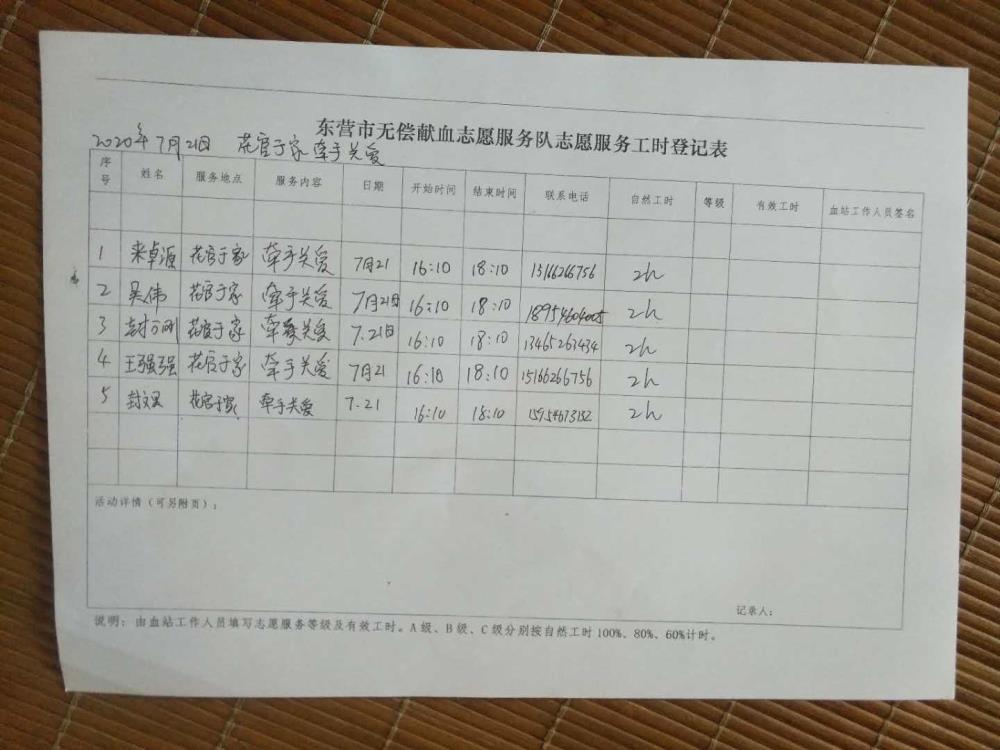 东营市无偿献血志愿服务队志愿服务工时登记表
2020年7月21日 花官于家 牵手关爱
序号 姓名 服务地点 服务内容 日期 开始时间 结束时间 联系电话 自然工时 等级 有效工时 血站工作人员签名
1 来卓源 花官于家 牵手关爱 7月21 16:10 18:10 13166266756 2h
2 吴伟 花官于家 牵手关爱 7月21日 16:10 18:10 2h
3 花官于家 7.21日 16:10 18:10 13465263434 2h
4 王强强 花官于家 牵手关爱 7月21 16:10 18:10 15166266756 2h
5 花官于家 牵手关爱 7.21 16:10 18:10 2h
活动详情(可另附页):
记录人:
说明: 由血站工作人员填写志愿服务等级及有效工时。A级、B级、C级分别按自然工时100%、80%、60%计时。